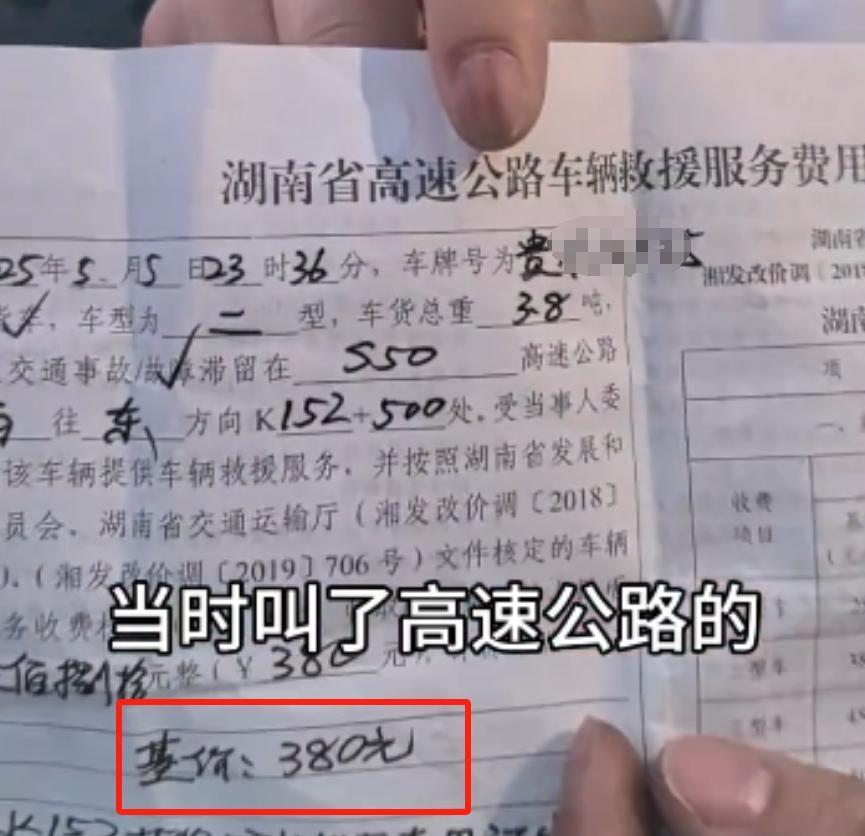 湖南省高速公路车辆救援服务费用
25年5月5日23时36分，车牌号为贵
货车，车型为二型，车货总重3.8吨，
交通事故/故障滞留在S50高速公路
往东方向K152+500处。受当事人委
该车辆提供车辆救援服务，并按照湖南省发展和
员会、湖南省交通运输厅（湘发改价调〔2018〕
）、（湘发改价调〔2019〕706号）文件核定的车辆
务收费
当时叫了高速公路的
佰捌拾元整（￥380元）
基价：380元
K152
湖南省
湘发改价调〔2019
湖南
项
一、
收费
项目
基
（元
车
二型车
38
三型车
45